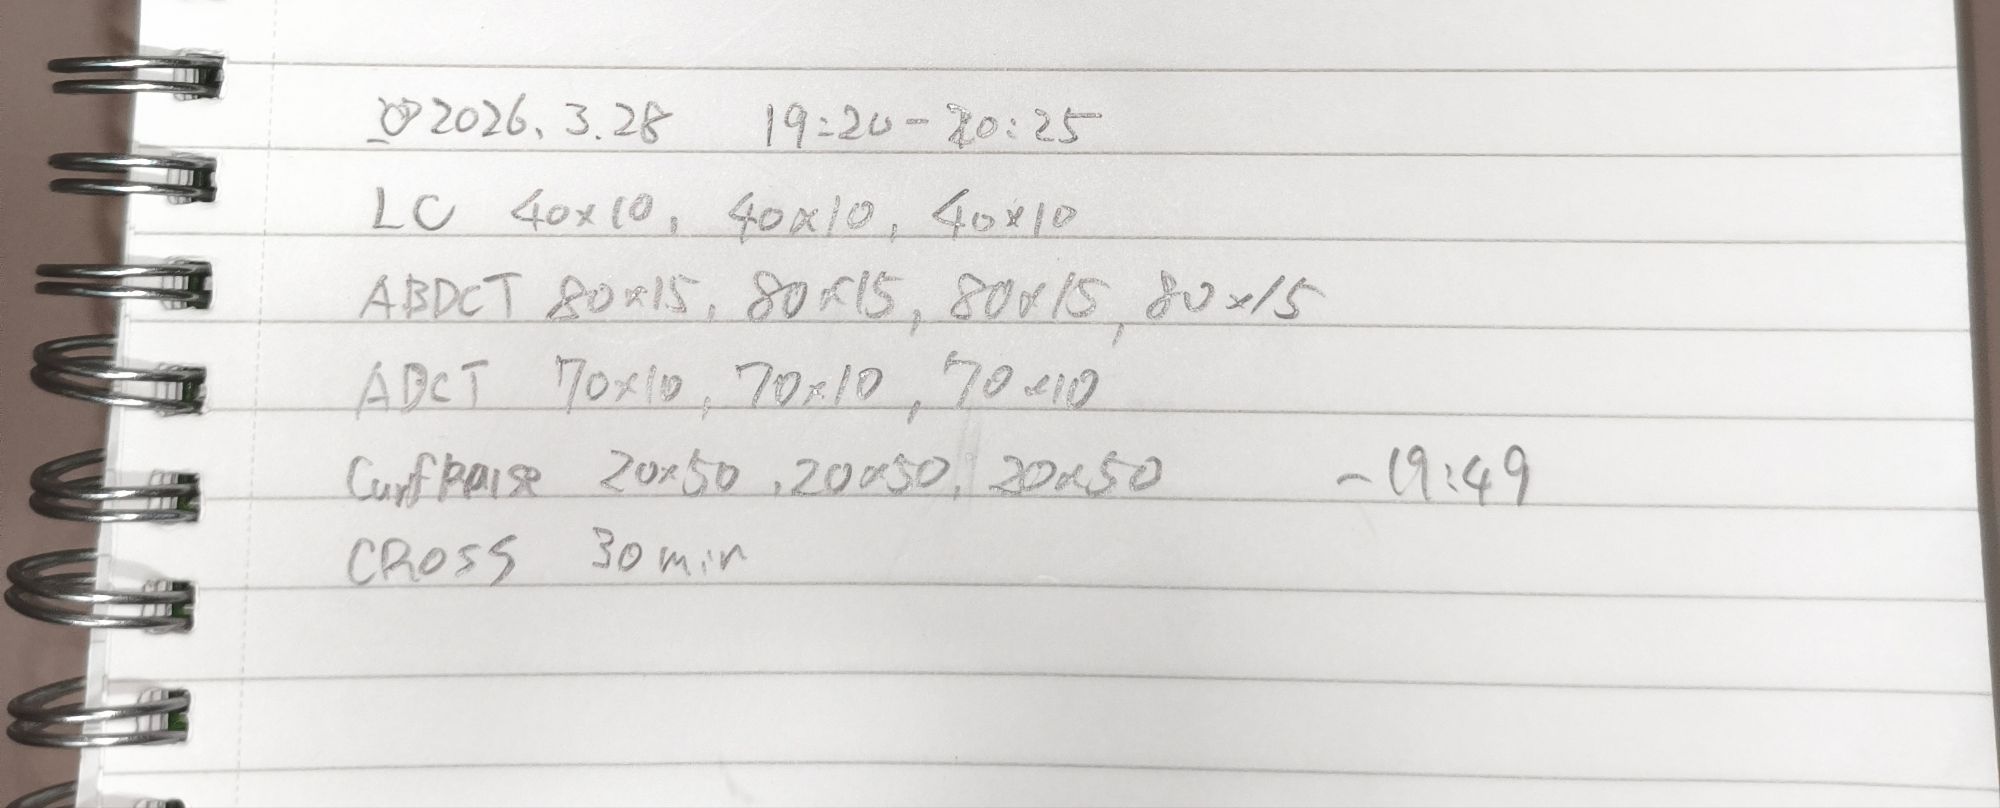 2026. 3. 28 19:20-20:25
LC 40x10, 40x10, 40x10
ABDCT 80x15, 80x15, 80x15, 80x15
ADCT 70x10, 70x10, 70x10
CurfRaise 20x50, 20x50, 20x50 -19:49
CROSS 30min